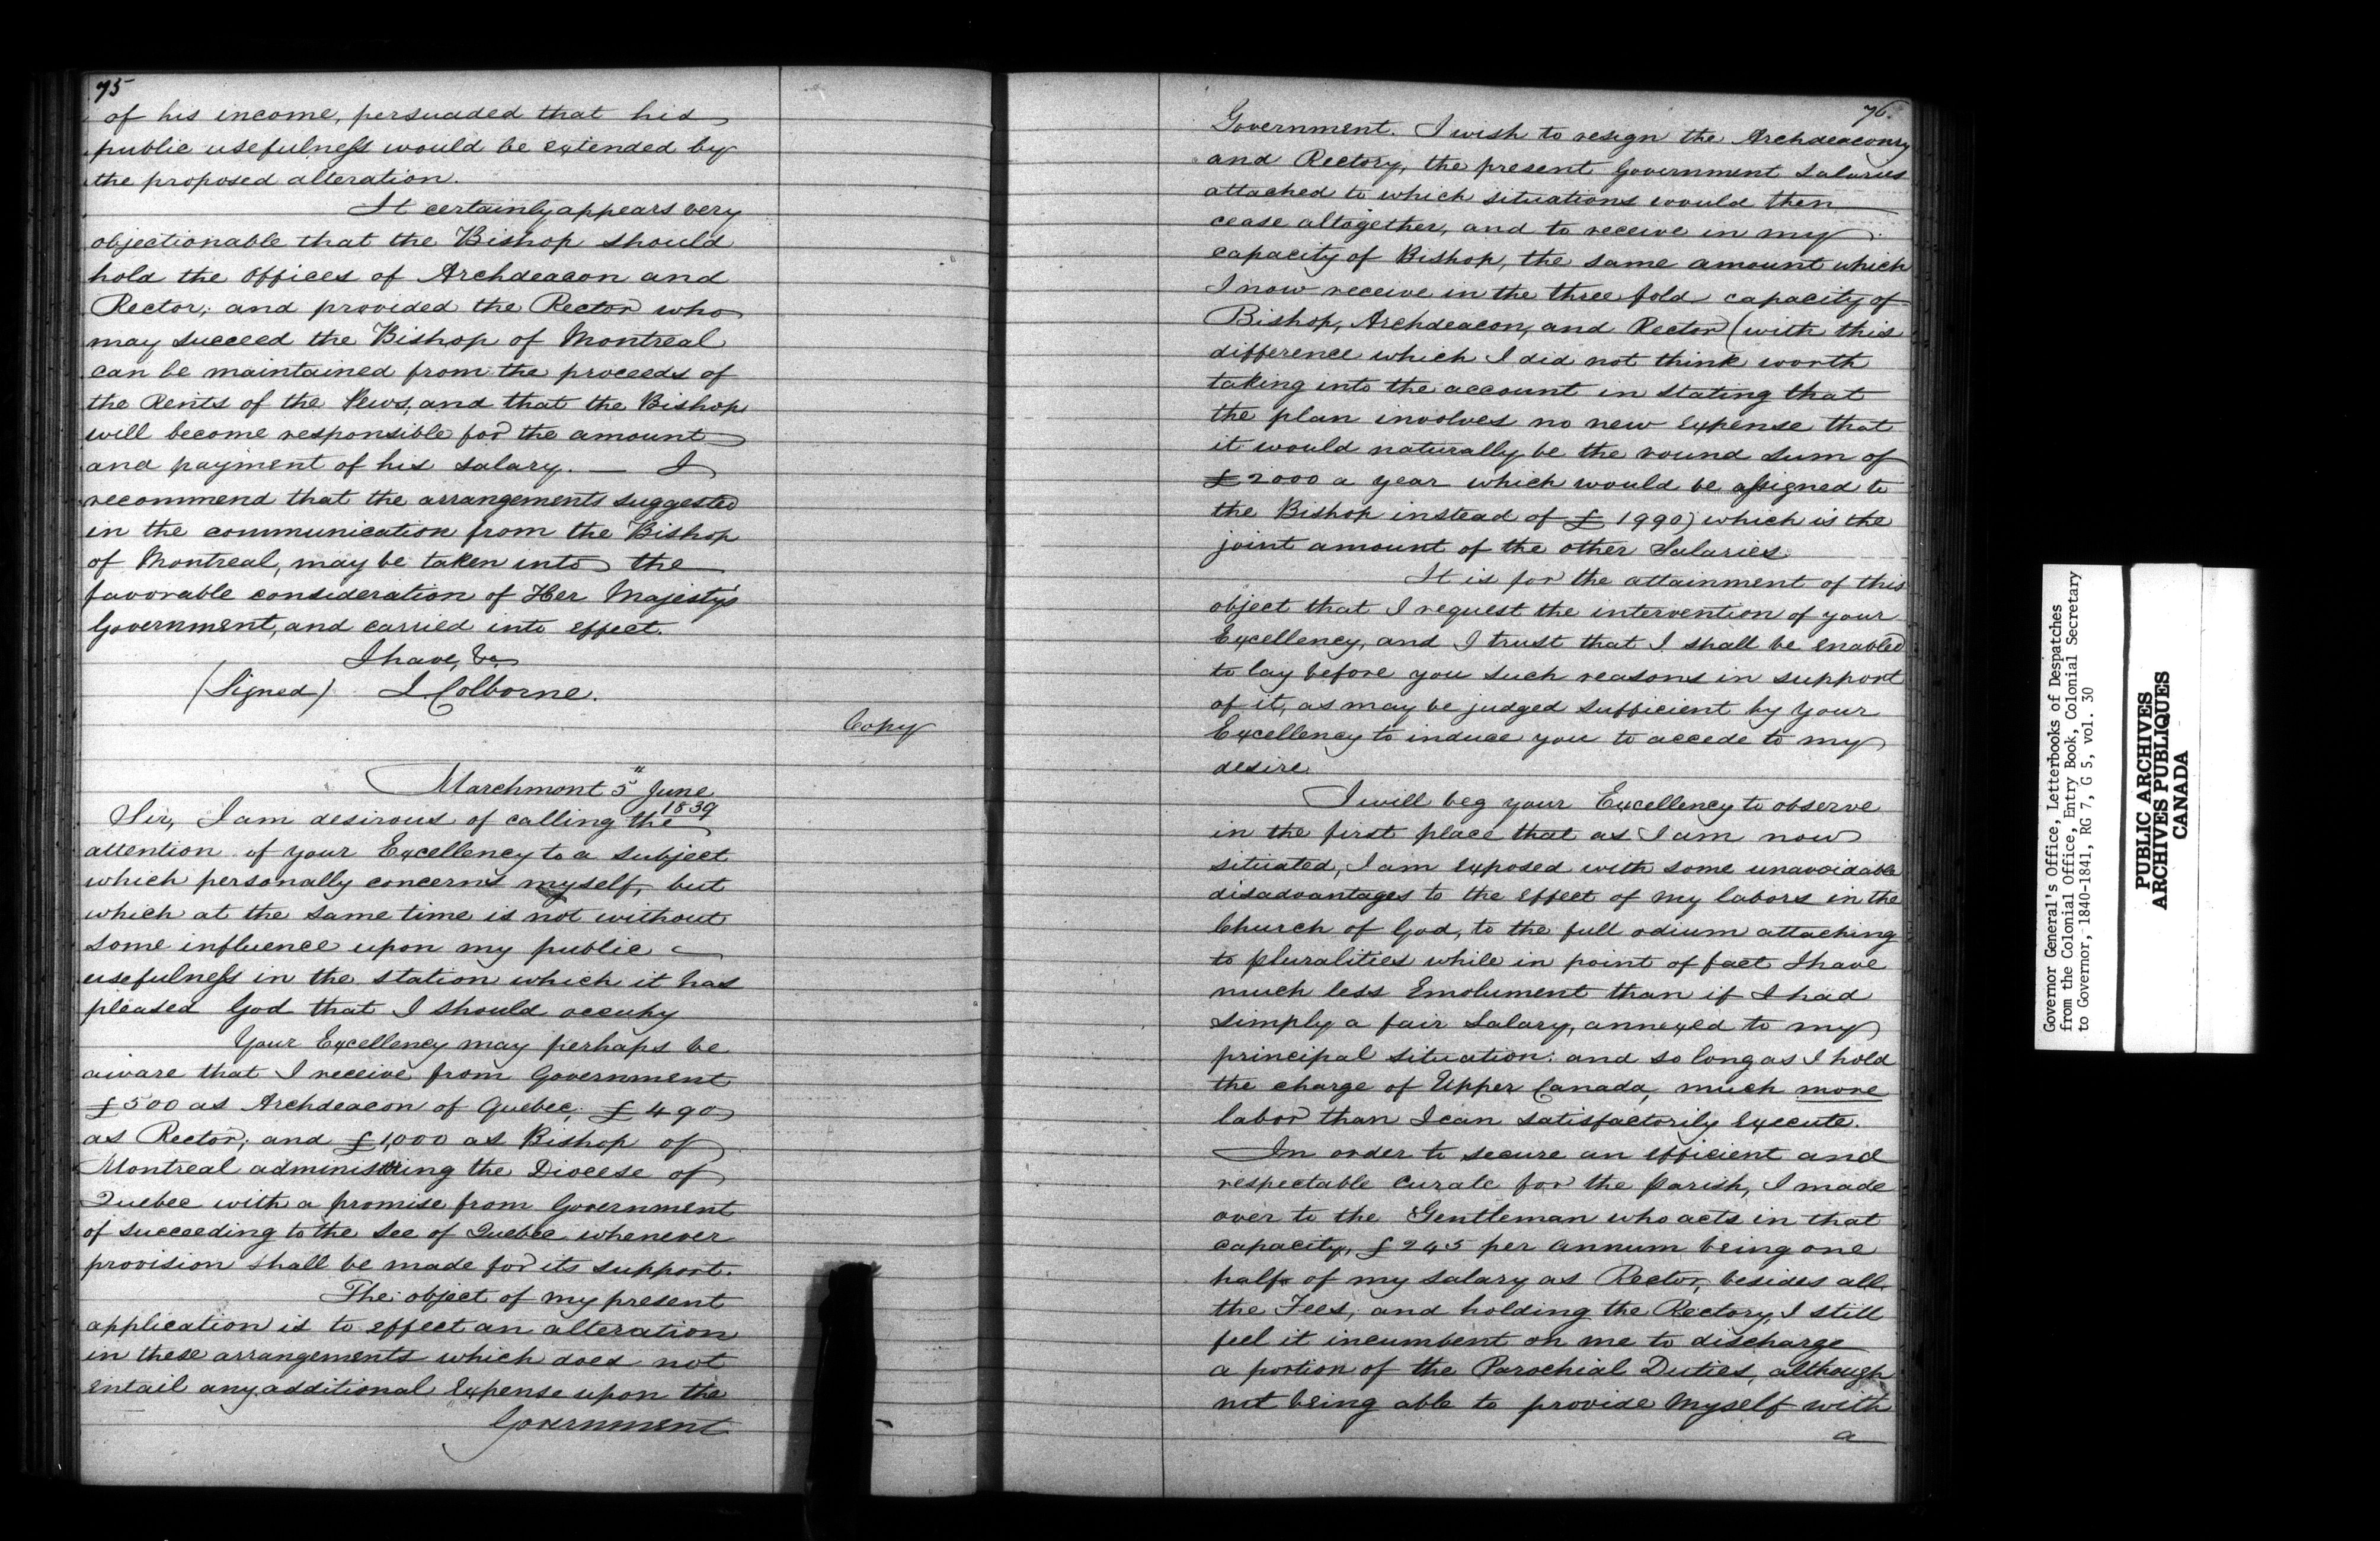 75
of his income, persuaded that his
public usefulness would be extended by
the proposed alteration.
It certainly appears very
objectionable that the Bishop should
hold the offices of Archdeacon and
Rector; and provided the Rector who
may succeed the Bishop of Montreal
can be maintained from the proceeds of
the Rents of the Pews, and that the Bishop
will become responsible for the amount
and payment of his salary. — I
recommend that the arrangements suggested
in the communication from the Bishop
of Montreal, may be taken into the
favorable consideration of Her Majesty's
Government, and carried into effect.
I have, &c
(Signed) J. Colborne.
Copy
Marchmont 5th June
1839
Sir, I am desirous of calling the
attention of your Excellency to a subject
which personally concerns myself, but
which at the same time is not without
some influence upon my public
usefulness in the station which it has
pleased God that I should occupy
Your Excellency may perhaps be
aware that I receive from Government
£500 as Archdeacon of Quebec, £490
as Rector; and £1,000 as Bishop of
Montreal administring the Diocese of
Quebec with a promise from Government
of succeeding to the See of Quebec whenever
provision shall be made for its support.
The object of my present
application is to effect an alteration
in these arrangements which does not
entail any additional expense upon the
Government
76.
Government. I wish to resign the Archdeaconry
and Rectory, the present Government Salaries
attached to which situations would then
cease altogether, and to receive in my
capacity of Bishop, the same amount which
I now receive in the three fold capacity of
Bishop, Archdeacon, and Rector (with this
difference which I did not think worth
taking into the account in stating that
the plan involves no new expense that
it would naturally be the round sum of
£2000 a year which would be assigned to
the Bishop instead of £1990) which is the
joint amount of the other Salaries.
It is for the attainment of this
object that I request the intervention of your
Excellency, and I trust that I shall be enabled
to lay before you such reasons in support
of it, as may be judged sufficient by Your
Excellency to induce you to accede to my
desire.
I will beg your Excellency to observe
in the first place that as I am now
situated, I am exposed with some unavoidable
disadvantages to the effect of my labors in the
Church of God, to the full odium attaching
to pluralities while in point of fact I have
much less Emolument than if I had
simply a fair Salary, annexed to my
principal situation: and so long as I hold
the charge of Upper Canada, much more
labor than I can satisfactorily execute.
In order to secure an efficient and
respectable curate for the Parish, I made
over to the Gentleman who acts in that
capacity, £245 per annum being one
half of my salary as Rector, besides all
the Fees, and holding the Rectory, I still
feel it incumbent on me to discharge
a portion of the Parochial Duties, although
not being able to provide myself with
a
Governor General's Office, Letterbooks of Despatches
from the Colonial Office, Entry Book, Colonial Secretary
to Governor, 1840-1841, RG 7, G 5, vol. 30
PUBLIC ARCHIVES
ARCHIVES PUBLIQUES
CANADA